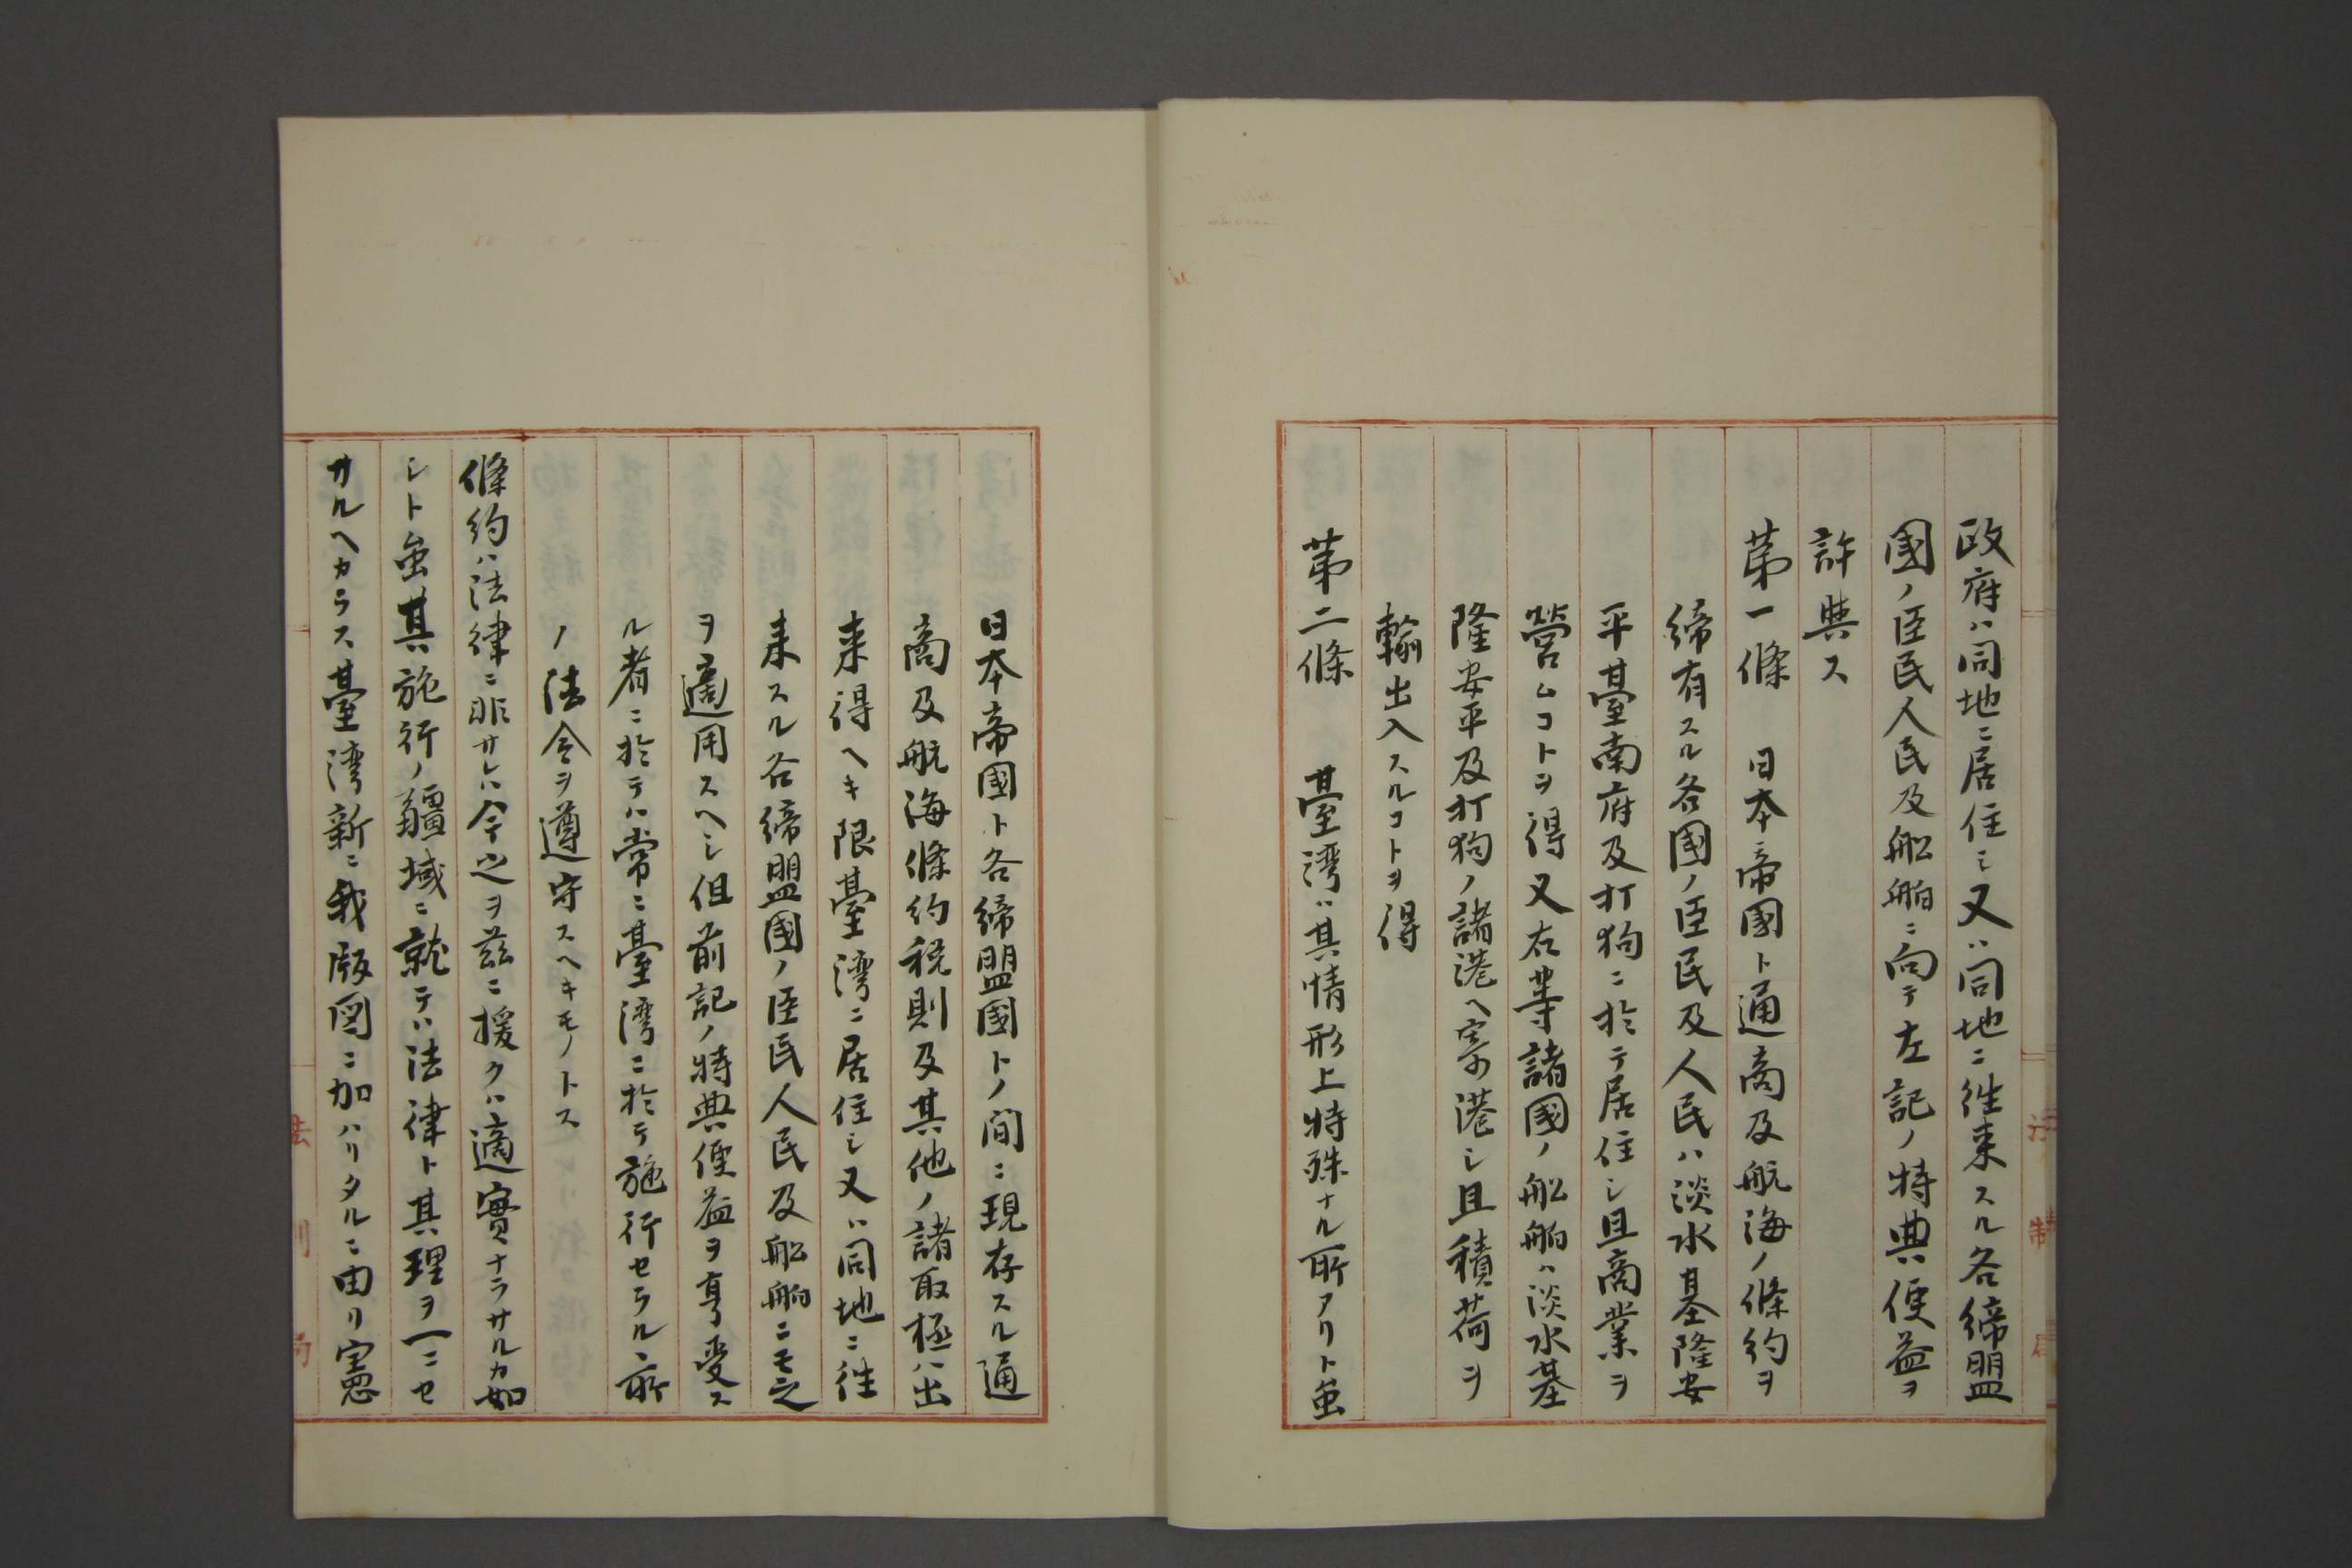 政府ハ同地ニ居住シ又ハ同地ニ往来スル各締盟
國ノ臣民人民及船舶ニ向テ左記ノ特典便益ヲ
許與ス
第一條 日本帝國ト通商及航海ノ條約ヲ
締有スル各國ノ臣民及人民ハ淡水基隆安
平臺南府及打狗ニ於テ居住シ且商業ヲ
營ムコトヲ得又右等諸國ノ船舶ハ淡水基
隆安平及打狗ノ諸港ヘ寄港シ且積荷ヲ
輸出入スルコトヲ得
第二條 臺湾ハ其情形上特殊ナル所アリト虽
日本帝國ト各締盟國トノ間ニ現存スル通
商及航海條約税則及其他ノ諸取極ハ出
来得ヘキ限臺湾ニ居住シ又ハ同地ニ往
来スル各締盟國ノ臣民人民及船舶ニモ之
ヲ適用スヘシ但前記ノ特典便益ヲ享受ス
ル者ニ於テハ常ニ臺湾ニ於テ施行セラルヽ所
ノ法令ヲ遵守スヘキモノトス
條約ハ法律ニ非サレハ今之ヲ茲ニ援クハ適實ナラサルカ如
シト虽其施行ノ疆域ニ就テハ法律ト其理ヲ一ニセ
サルヘカラス臺湾新ニ我版図ニ加ハリタルニ由リ憲
法制局